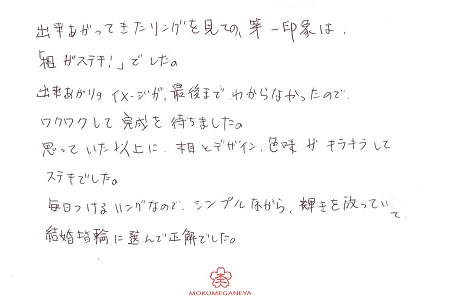 出来あがってきたリングを見ての、第一印象は、
「相がステキ!」でした。
出来あがりの イメージが、最後まで わからなかったので、
ワクワクして 完成を 待ちました。
思っていた以上に、相とデザイン、色味が キラキラして
ステキでした。
毎日つけるリングなので、シンプルながら、輝きを放っていて、
結婚指輪に選んで正解でした。
MOKUMEGANEYA